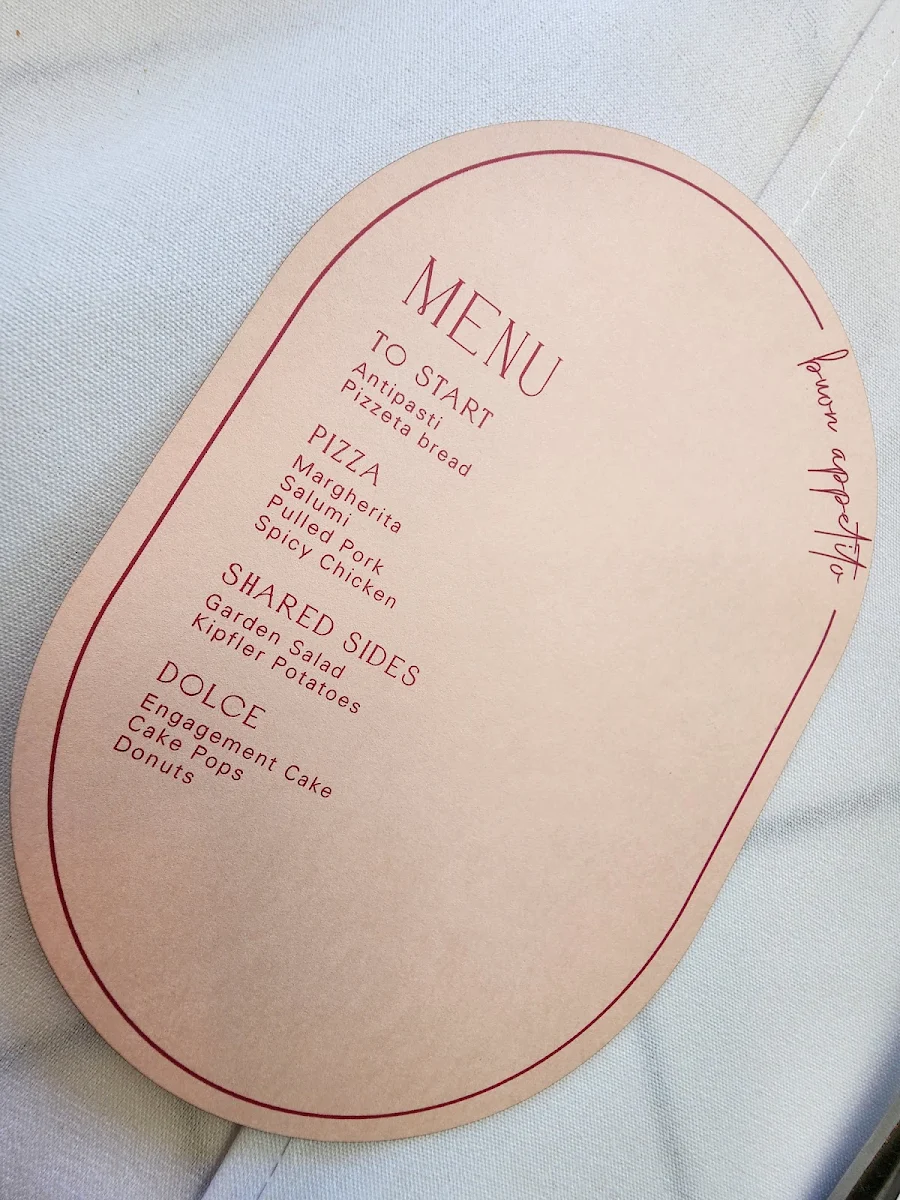 MENU
TO START
Antipasti
Pizzeta bread
PIZZA
Margherita
Salumi
Pulled Pork
Spicy Chicken
SHARED SIDES
Garden Salad
Kipfler Potatoes
DOLCE
Engagement Cake
Cake Pops
Donuts
buon appetito